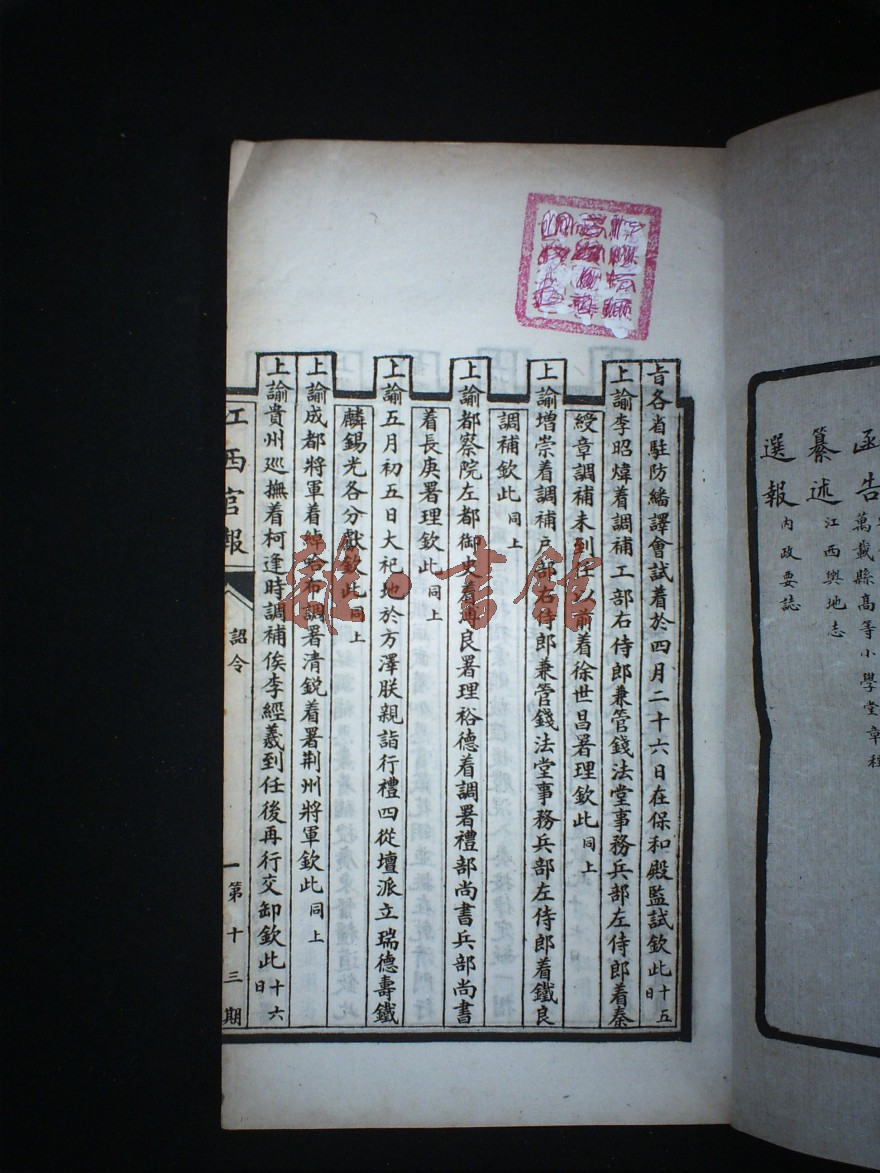 函告
萬載縣高等小學堂章程
纂述
江西輿地志
選報
內政要誌
旨各省駐防繙譯會試着於四月二十六日在保和殿監試欽此十五日
上諭李昭煒着調補工部右侍郎兼管錢法堂事務兵部左侍郎着秦
綬章調補未到任以前着徐世昌署理欽此同上
上諭增崇着調補戶部右侍郎兼管錢法堂事務兵部左侍郎着鐵良
調補欽此同上
上諭都察院左都御史着
良署理裕德着調署禮部尚書兵部尚書
着長庚署理欽此同上
上諭五月初五日大祀地於方澤朕親詣行禮四從壇派立瑞德壽鐵
麟錫光各分獻欽此同上
上諭成都將軍着綽哈布調署清銳着署荆州將軍欽此同上
上諭貴州巡撫着柯逢時調補俟李經羲到任後再行交卸欽此十六日
江西官報
詔令
一
第十三期
雜·書館